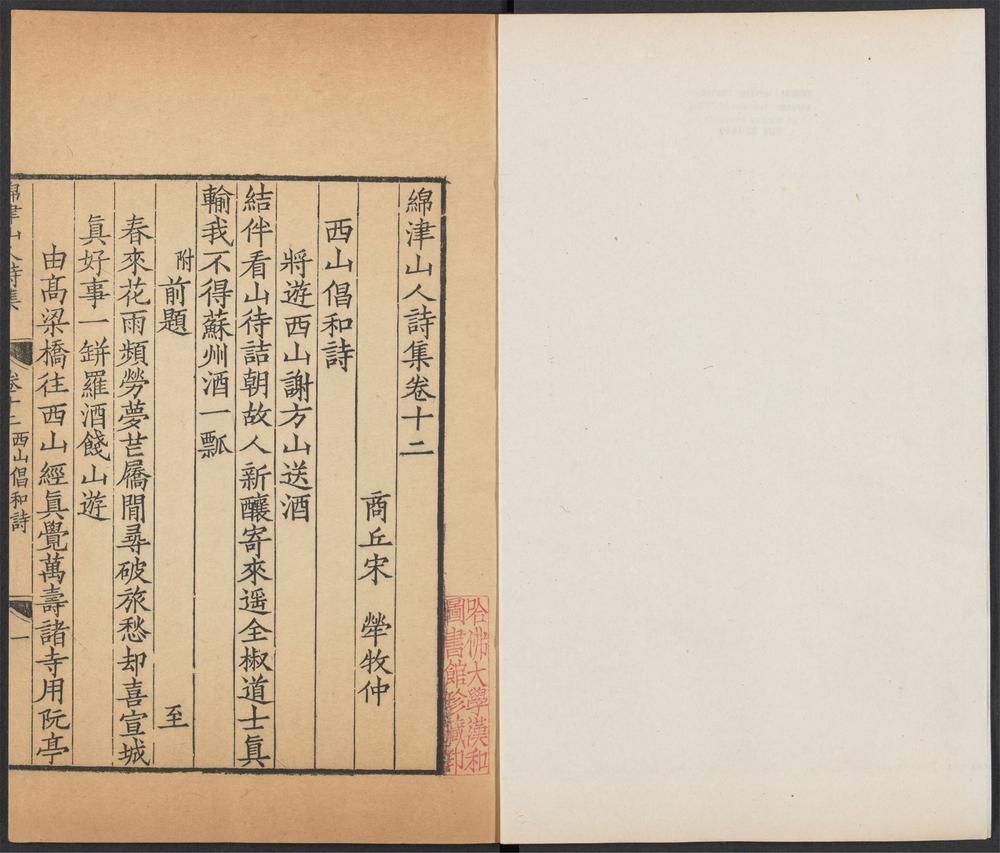 綿津山人詩集卷十二
商丘宋 犖牧仲
西山倡和詩
將遊西山謝方山送酒
結伴看山待詰朝故人新釀寄來遥全椒道士眞
輸我不得蘇州酒一瓢
附前題 至
春來花雨頻勞夢芒屩閒尋破旅愁却喜宣城
眞好事一缾羅酒餞山遊
由髙梁橋往西山經眞覺萬壽諸寺用阮亭
綿津山人詩集 卷十二 西山倡和詩 一
哈佛大學漢和
圖書館珍藏印